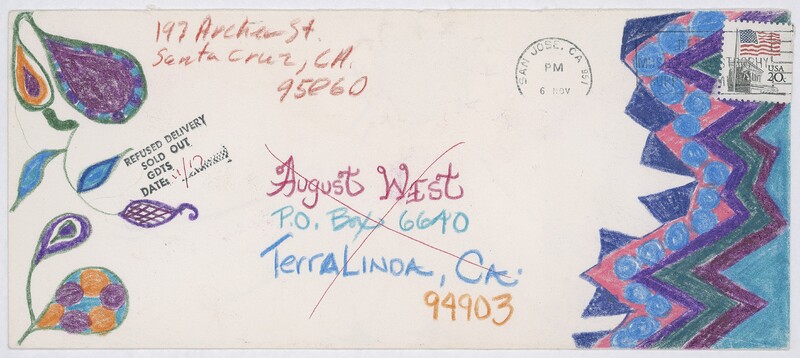 197 Archer St.
Santa Cruz, CA.
95060
SAN JOSE, CA 951
PM
6 NOV
USA
20c
REFUSED DELIVERY
SOLD OUT
GDTS
DATE:
August West
P.O. Box 6640
TerraLinda, Ca.
94903